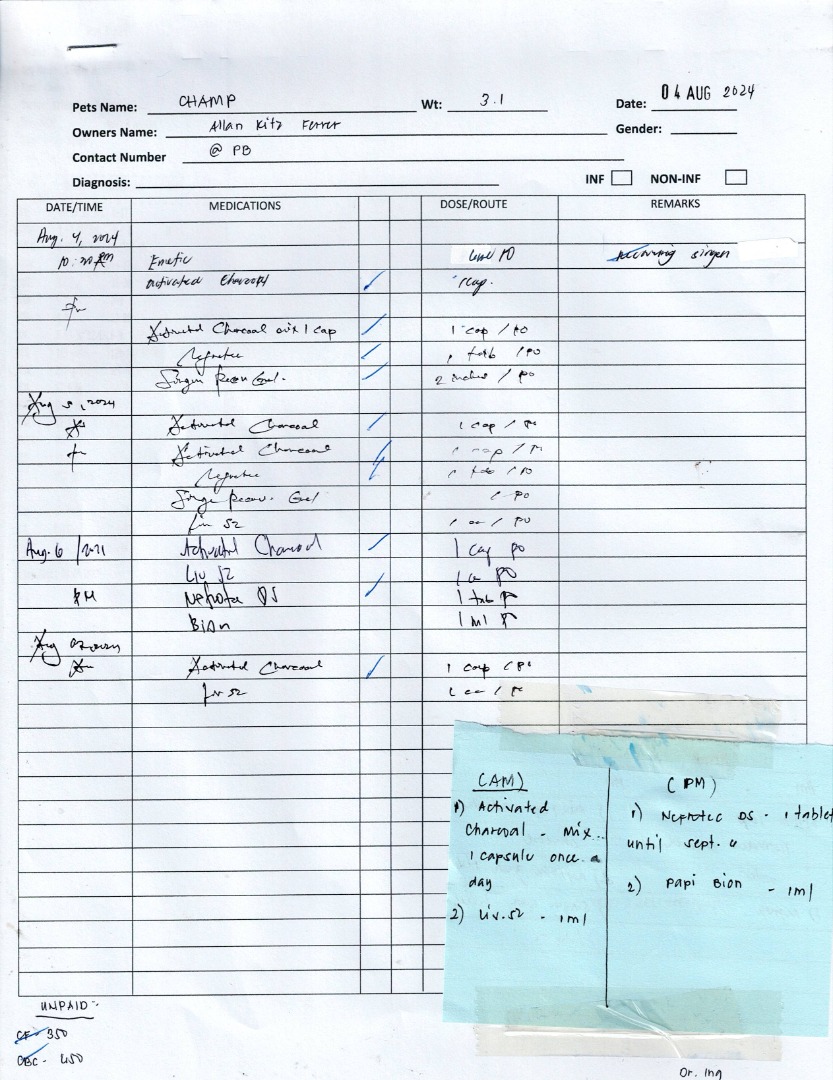 Pets Name: CHAMP Wt: 3.1 Date: 04 AUG 2024
Owners Name: Allan Kitz Ferrer Gender:
Contact Number @ PB
Diagnosis: INF NON-INF
DATE/TIME MEDICATIONS DOSE/ROUTE REMARKS
Aug. 4, 2024
Emetic PO
Activated Charcoal 1cap.
Activated Charcoal mix 1 cap 1 cap / PO
1 tab / PO
Gel. 2 inches / PO
Aug 5, 2024
Activated Charcoal 1 cap / PO
Activated Charcoal 1 cap / PO
1 tab / PO
Gel / PO
Liv 52 1 cc / PO
Aug. 6 Activated Charcoal 1 cap PO
Liv 52 1 cc PO
PM Nefrotec DS 1 tab
Bion 1 ml
Aug
Activated Charcoal 1 cap / PO
Liv 52 1 cc / PO
(AM)
1) Activated
Charcoal - Mix
1 capsule once a
day
2) Liv.52 - 1ml
(PM)
1) Nefrotec DS - 1 tablet
until sept. 4
2) Papi Bion - 1ml
UNPAID:
CF - 350
CBC - 450
Dr. Ing